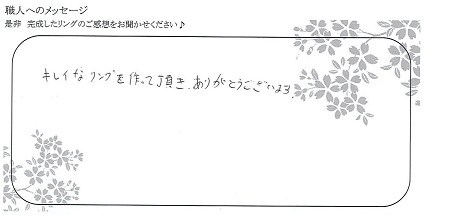 職人へのメッセージ
是非 完成したリングのご感想をお聞かせください♪
キレイなリングを作って頂き、ありがとうございます。